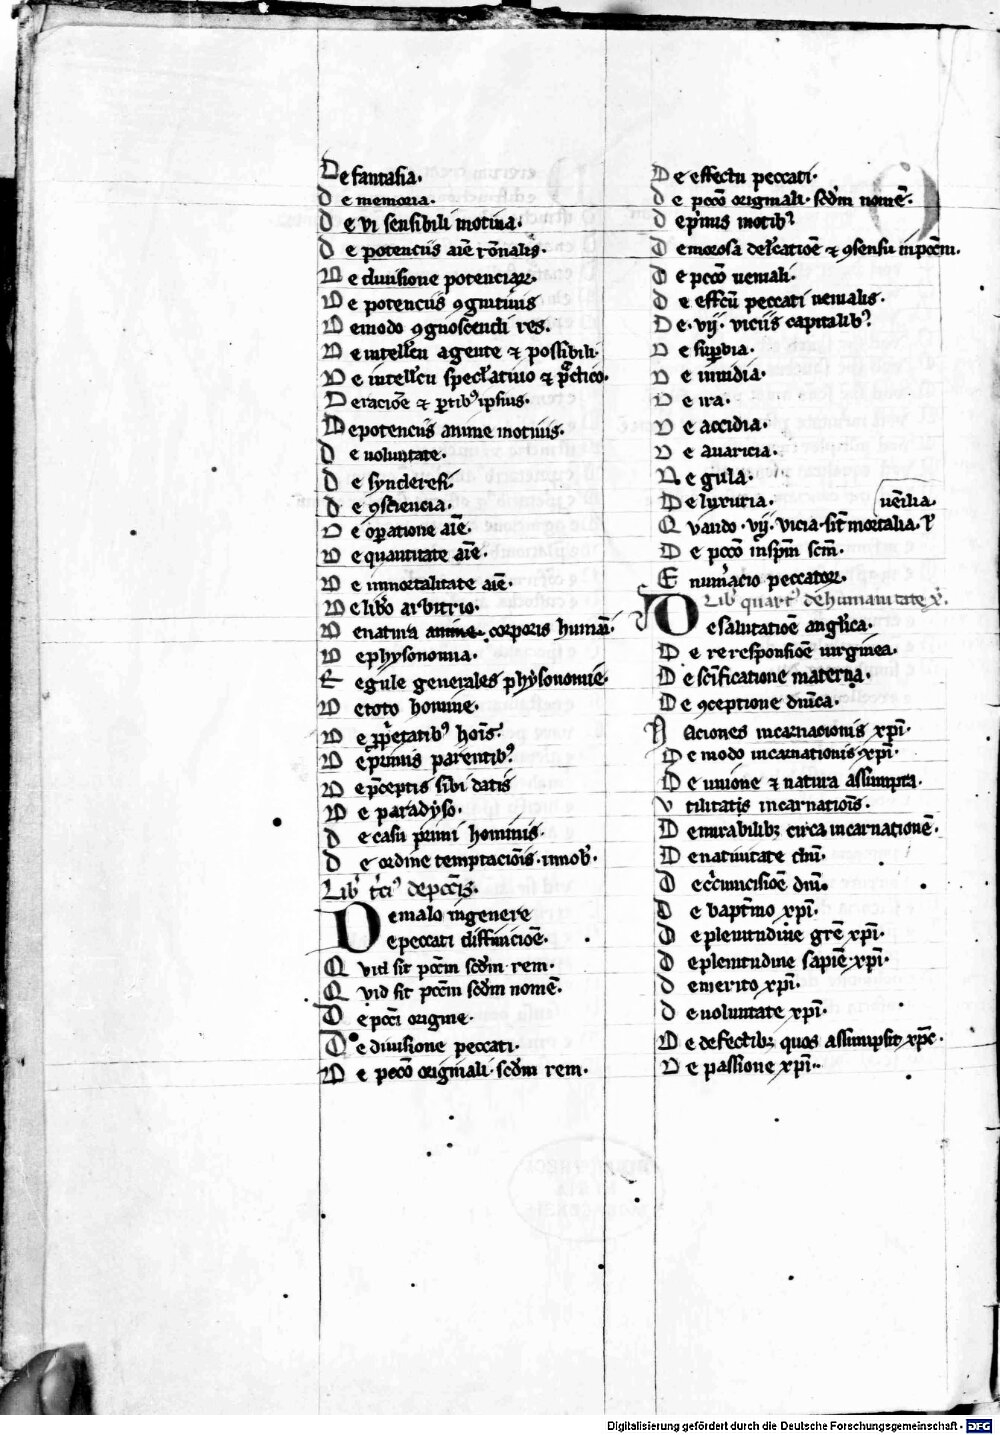 De fantasia.
de memoria.
de vi sensibili motiua.
de potenciis aīe rōnalis.
De diuisione potenciaꝝ.
De potenciis ꝯgnitiuis
De modo ꝯgnoscendi res.
De intellcu agente ⁊ possibili.
De intellcu speclatiuo ⁊ pctico.
De racioē ⁊ ptibꝫ ipsius.
De potenciis anime motiuis.
de uoluntate.
de synderesi.
de ꝯsciencia.
De opatione aīe.
De quantitate aīe.
De inmortalitate aīe.
De libo arbitrio.
De natura anime corporis humāi.
De physonomia.
Regule generales physonomie.
De toto homine.
De ppetatibꝰ hoīs.
De primis parentibꝰ.
De pceptis sibi datis
De paradyso.
de casu primi hominis.
de ordine temptaciōis. in nob.
Lib tcī de pccīs.
De malo in genere
De peccati diffinicioē.
Quid sit pccm scdm rem.
Quid sit pccm scdm nomē.
De pccī origine.
De diuisione peccati.
De pccō originali scdm rem.
De effectu peccati.
de pccō originali. scdm nomē.
de pmis motibꝰ
de morosa delcatioē ⁊ ꝯsensu in pccm.
de pccō ueniali.
de effcu peccati uenialis.
De. vij. viciis capitalibꝰ
De supbia.
De inuidia.
De ira.
De accidia.
De auaricia.
De gula.
De luxuria. uēilia.
Quando. vij. vicia. sūt mortalia. ł
De pccō in spm scm.
Enumacio peccatoꝝ.
Lib quartꝰ de humanitate x.
De salutatioē anglica.
De re responsioē uirginea.
De scificatione materna.
De ꝯceptione dnica.
Raciones incarnacionis xpi.
De modo incarnationis xpi.
De unione ⁊ natura assumpta.
Vtilitatis incarnatiōis.
De mirabilibꝫ circa incarnationē.
De natiuitate dni.
De circumcisioē dni.
De baptmo xpi.
de plenitudine grē xpi.
de plenitudine sapiē xpi.
de merito xpi.
de uoluntate xpi.
De defectibꝫ quos assumpsit xpc.
De passione xpi.
Digitalisierung gefördert durch die Deutsche Forschungsgemeinschaft - DFG